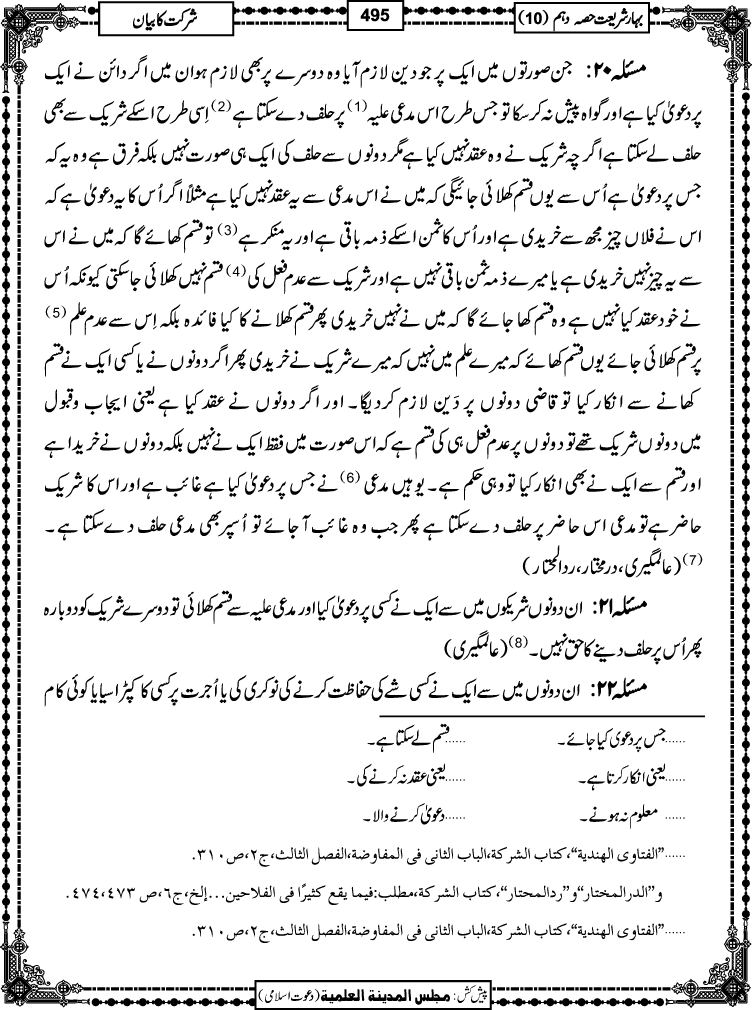 بہار شریعت حصہ دہم (10)
495
شرکت کا بیان
مسئلہ ۲۰: جن صورتوں میں ایک پر جو دین لازم آیا وہ دوسرے پر بھی لازم ہو ان میں اگر دائن نے ایک
پر دعویٰ کیا ہے اور گواہ پیش نہ کر سکا تو جس طرح اس مدعی علیہ (1) پر حلف دے سکتا ہے (2) اِسی طرح اسکے شریک سے بھی
حلف لے سکتا ہے اگر چہ شریک نے وہ عقد نہیں کیا ہے مگر دونوں سے حلف کی ایک ہی صورت نہیں بلکہ فرق ہے وہ یہ کہ
جس پر دعویٰ ہے اُس سے یوں قسم کھلائی جائیگی کہ میں نے اس مدعی سے یہ عقد نہیں کیا ہے مثلاً اگر اُس کا یہ دعویٰ ہے کہ
اس نے فلاں چیز مجھ سے خریدی ہے اور اُس کا ثمن اسکے ذمہ باقی ہے اور یہ منکر ہے (3) تو قسم کھائے گا کہ میں نے اس
سے یہ چیز نہیں خریدی ہے یا میرے ذمہ ثمن باقی نہیں ہے اور شریک سے عدم فعل کی (4) قسم نہیں کھلائی جاسکتی کیونکہ اُس
نے خود عقد کیا نہیں ہے وہ قسم کھا جائے گا کہ میں نے نہیں خریدی پھر قسم کھلانے کا کیا فائدہ بلکہ اِس سے عدم علم (5)
پر قسم کھلائی جائے یوں قسم کھائے کہ میرے علم میں نہیں کہ میرے شریک نے خریدی پھر اگر دونوں نے یا کسی ایک نے قسم
کھانے سے انکار کیا تو قاضی دونوں پر دَین لازم کردیگا۔ اور اگر دونوں نے عقد کیا ہے یعنی ایجاب وقبول
میں دونوں شریک تھے تو دونوں پر عدم فعل ہی کی قسم ہے کہ اس صورت میں فقط ایک نے نہیں بلکہ دونوں نے خریدا ہے
اور قسم سے ایک نے بھی انکار کیا تو وہی حکم ہے۔ یوہیں مدعی (6) نے جس پر دعویٰ کیا ہے غائب ہے اور اس کا شریک
حاضر ہے تو مدعی اس حاضر پر حلف دے سکتا ہے پھر جب وہ غائب آجائے تو اُسپر بھی مدعی حلف دے سکتا ہے۔
(7) (عالمگیری، درمختار، ردالمحتار)
مسئلہ ۲۱: ان دونوں شریکوں میں سے ایک نے کسی پر دعویٰ کیا اور مدعی علیہ سے قسم کھلائی تو دوسرے شریک کو دوبارہ
پھر اُس پر حلف دینے کا حق نہیں۔ (8) (عالمگیری)
مسئلہ ۲۲: ان دونوں میں سے ایک نے کسی شے کی حفاظت کرنے کی نوکری کی یا اُجرت پر کسی کا کپڑا سیا یا کوئی کام
......جس پر دعوی کیا جائے۔ ......قسم لے سکتا ہے۔
......یعنی انکار کرتا ہے۔ ......یعنی عقد نہ کرنے کی۔
...... معلوم نہ ہونے۔ ......دعویٰ کرنے والا۔
......”الفتاوی الھندیة“، کتاب الشرکة،الباب الثانی فی المفاوضة،الفصل الثالث،ج۲،ص۳۱۰.
و”الدرالمختار“و”ردالمحتار“، کتاب الشرکة،مطلب:فیما یقع کثیرًا فی الفلاحین...إلخ،ج۶،ص ۴۷۴،۴۷۳.
......”الفتاوی الھندیة“، کتاب الشرکة،الباب الثانی فی المفاوضة،الفصل الثالث،ج۲،ص۳۱۰.
پیش کش: مجلس المدینة العلمیة (دعوت اسلامی)